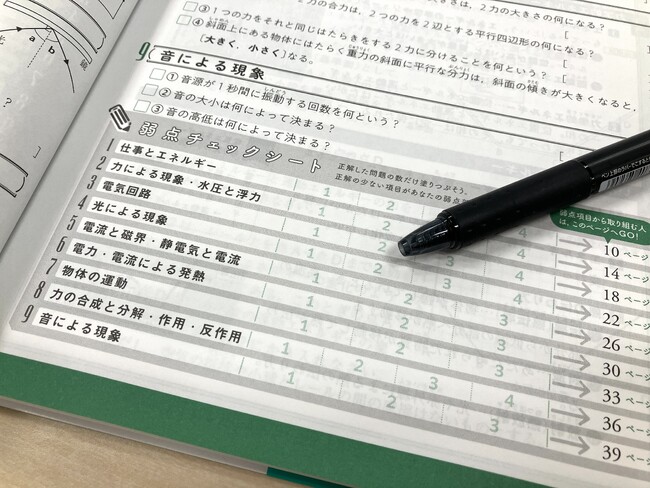 光
a b
2力の合力は，2つの力を2辺とする平行四辺形の何になる？
③1つの力をそれと同じはたらきをする2力に分けることを何という？
④斜面上にある物体にはたらく重力の斜面に平行な分力は，斜面の傾きが大きくなると，
〔大きく，小さく〕なる。
9 音による現象
①音源が1秒間に振動する回数を何という？
②音の大小は何によって決まる？
③音の高低は何によって決まる？
弱点チェックシート
正解した問題の数だけ塗りつぶそう。
正解の少ない項目があなたの弱点
弱点項目から取り組む人は，このページへGO！
1 仕事とエネルギー 1 10 ページ
2 力による現象・水圧と浮力 1 2 14 ページ
3 電気回路 1 2 18 ページ
4 光による現象 1 2 3 4 22 ページ
5 電流と磁界・静電気と電流 1 2 3 4 26 ページ
6 電力・電流による発熱 1 2 3 4 30 ページ
7 物体の運動 1 2 3 4 33 ページ
8 力の合成と分解・作用・反作用 1 2 3 4 36 ページ
9 音による現象 1 2 3 39 ページ